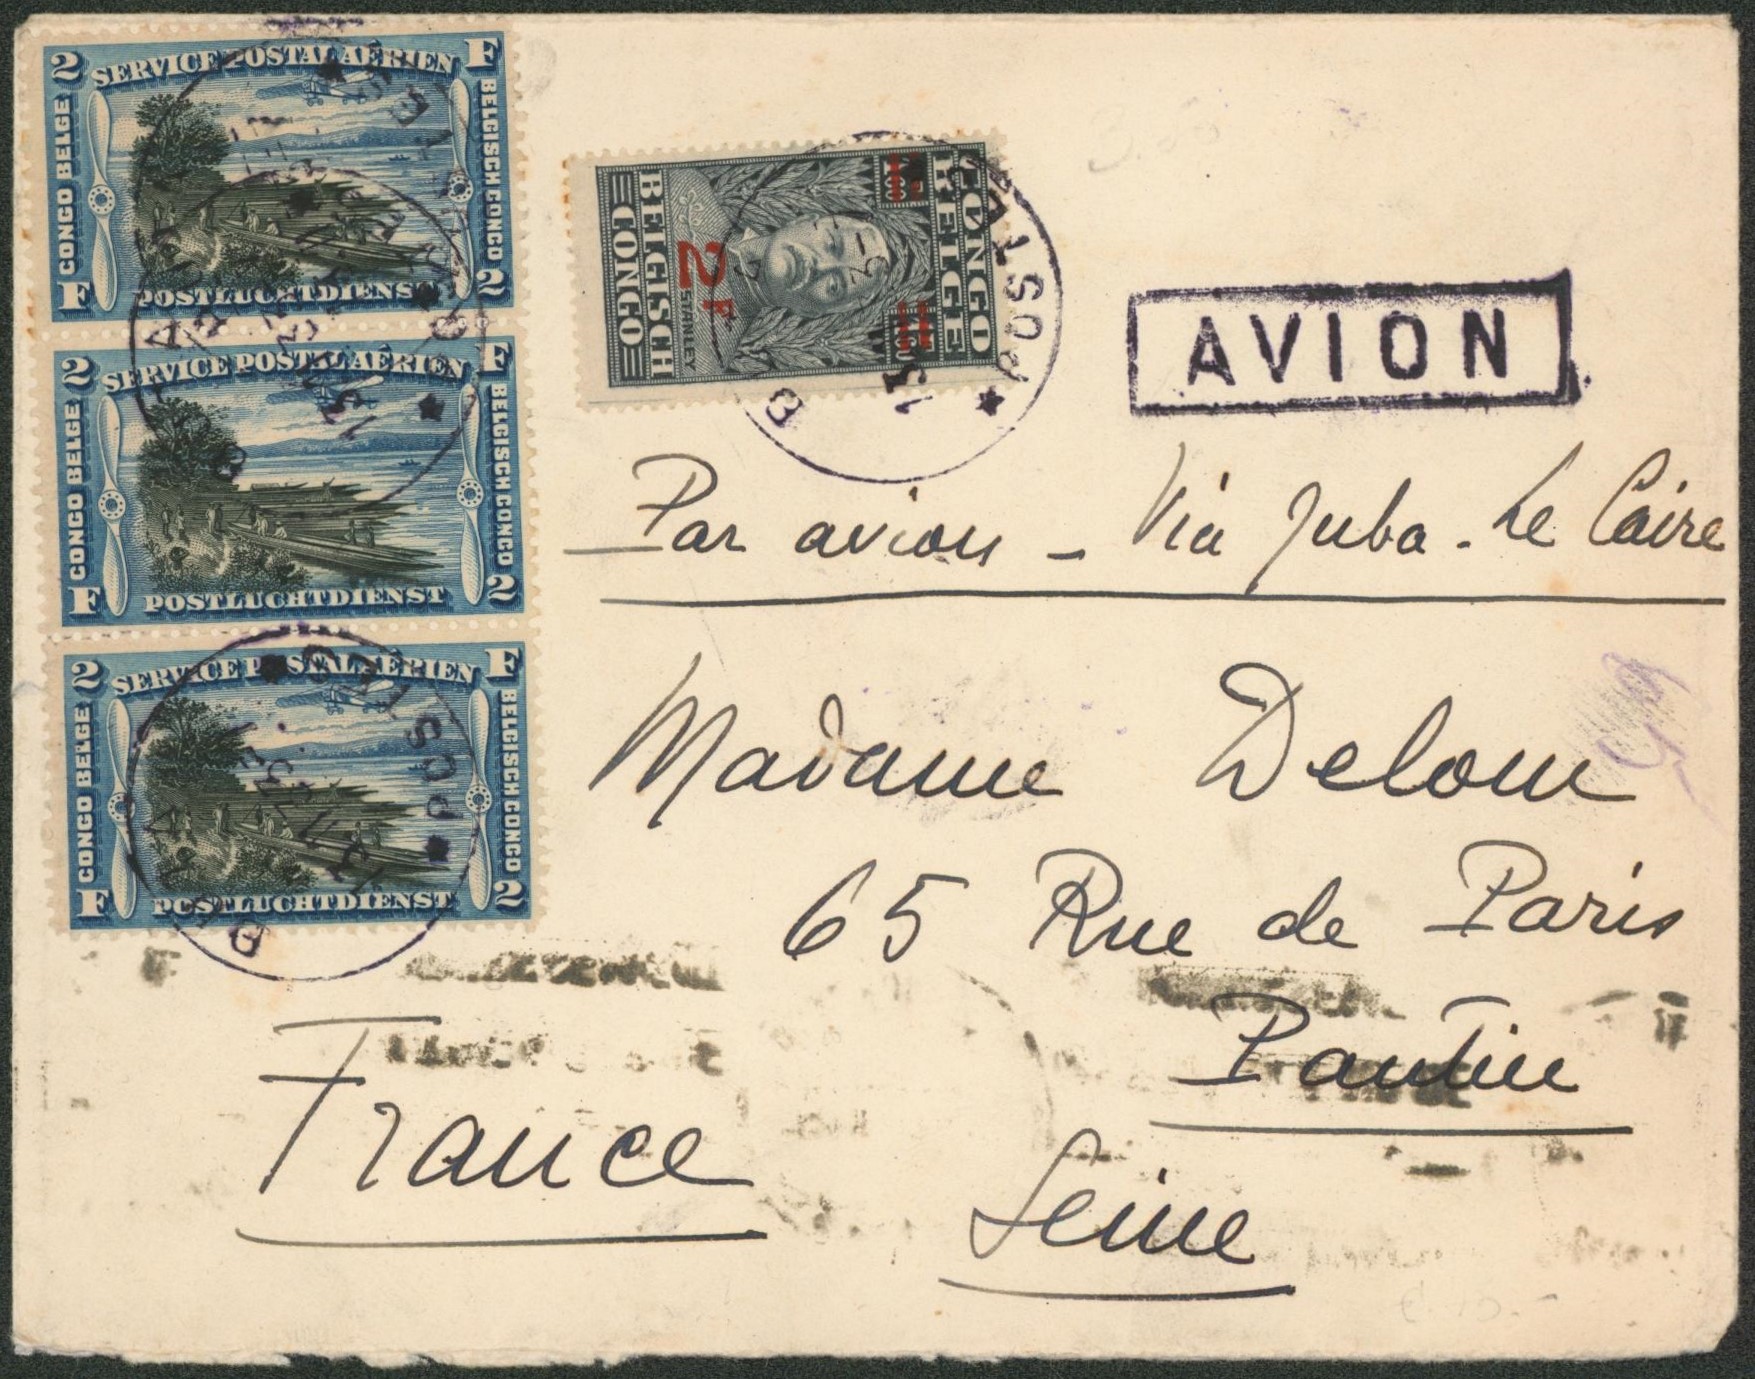 2 SERVICE POSTAL AÉRIEN F
CONGO BELGE
BELGISCH CONGO
F POSTLUCHTDIENST 2
2 SERVICE POSTAL AÉRIEN F
CONGO BELGE
BELGISCH CONGO
F POSTLUCHTDIENST 2
2 SERVICE POSTAL AÉRIEN F
CONGO BELGE
BELGISCH CONGO
F POSTLUCHTDIENST 2
CONGO
BELGE
2F
STANLEY
BELGISCH
CONGO
POSTES
AVION
Par avion - Via Juba - Le Caire
Madame Delom
65 Rue de Paris
Pantin
France
Seine